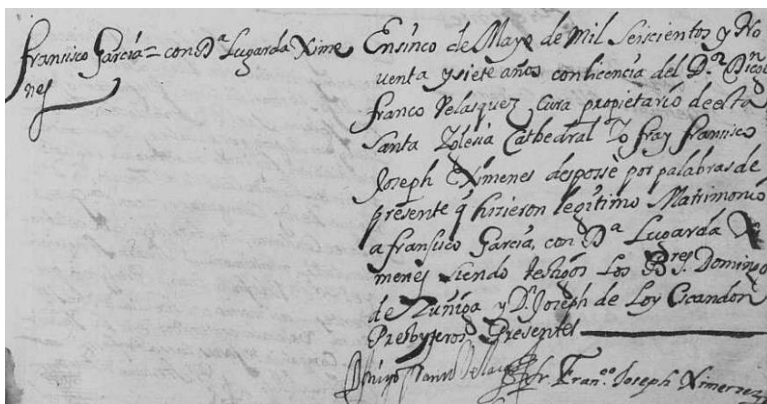 Francisco Garcia = con D.ª Lugarda Xime
nes
En sinco de Mayo de mil Seiscientos y No
venta y siete años con licencia del D.ºʳ
franco Velasquez Cura propietario de esta
Santa Iglesia Cathedral Yo fray fransisco
Joseph Ximenes despose por palabras de
presente q̃ hizieron legitimo Matrimonio
a fransisco Garcia, con D.ª Lugarda Xi
menes siendo testigos Los B.ʳᵉˢ Domingo
de Zuñiga y D. Joseph de Loy Escandon
Presbyteros Presentes
fr Fran.ᶜᵒ Joseph Ximenez